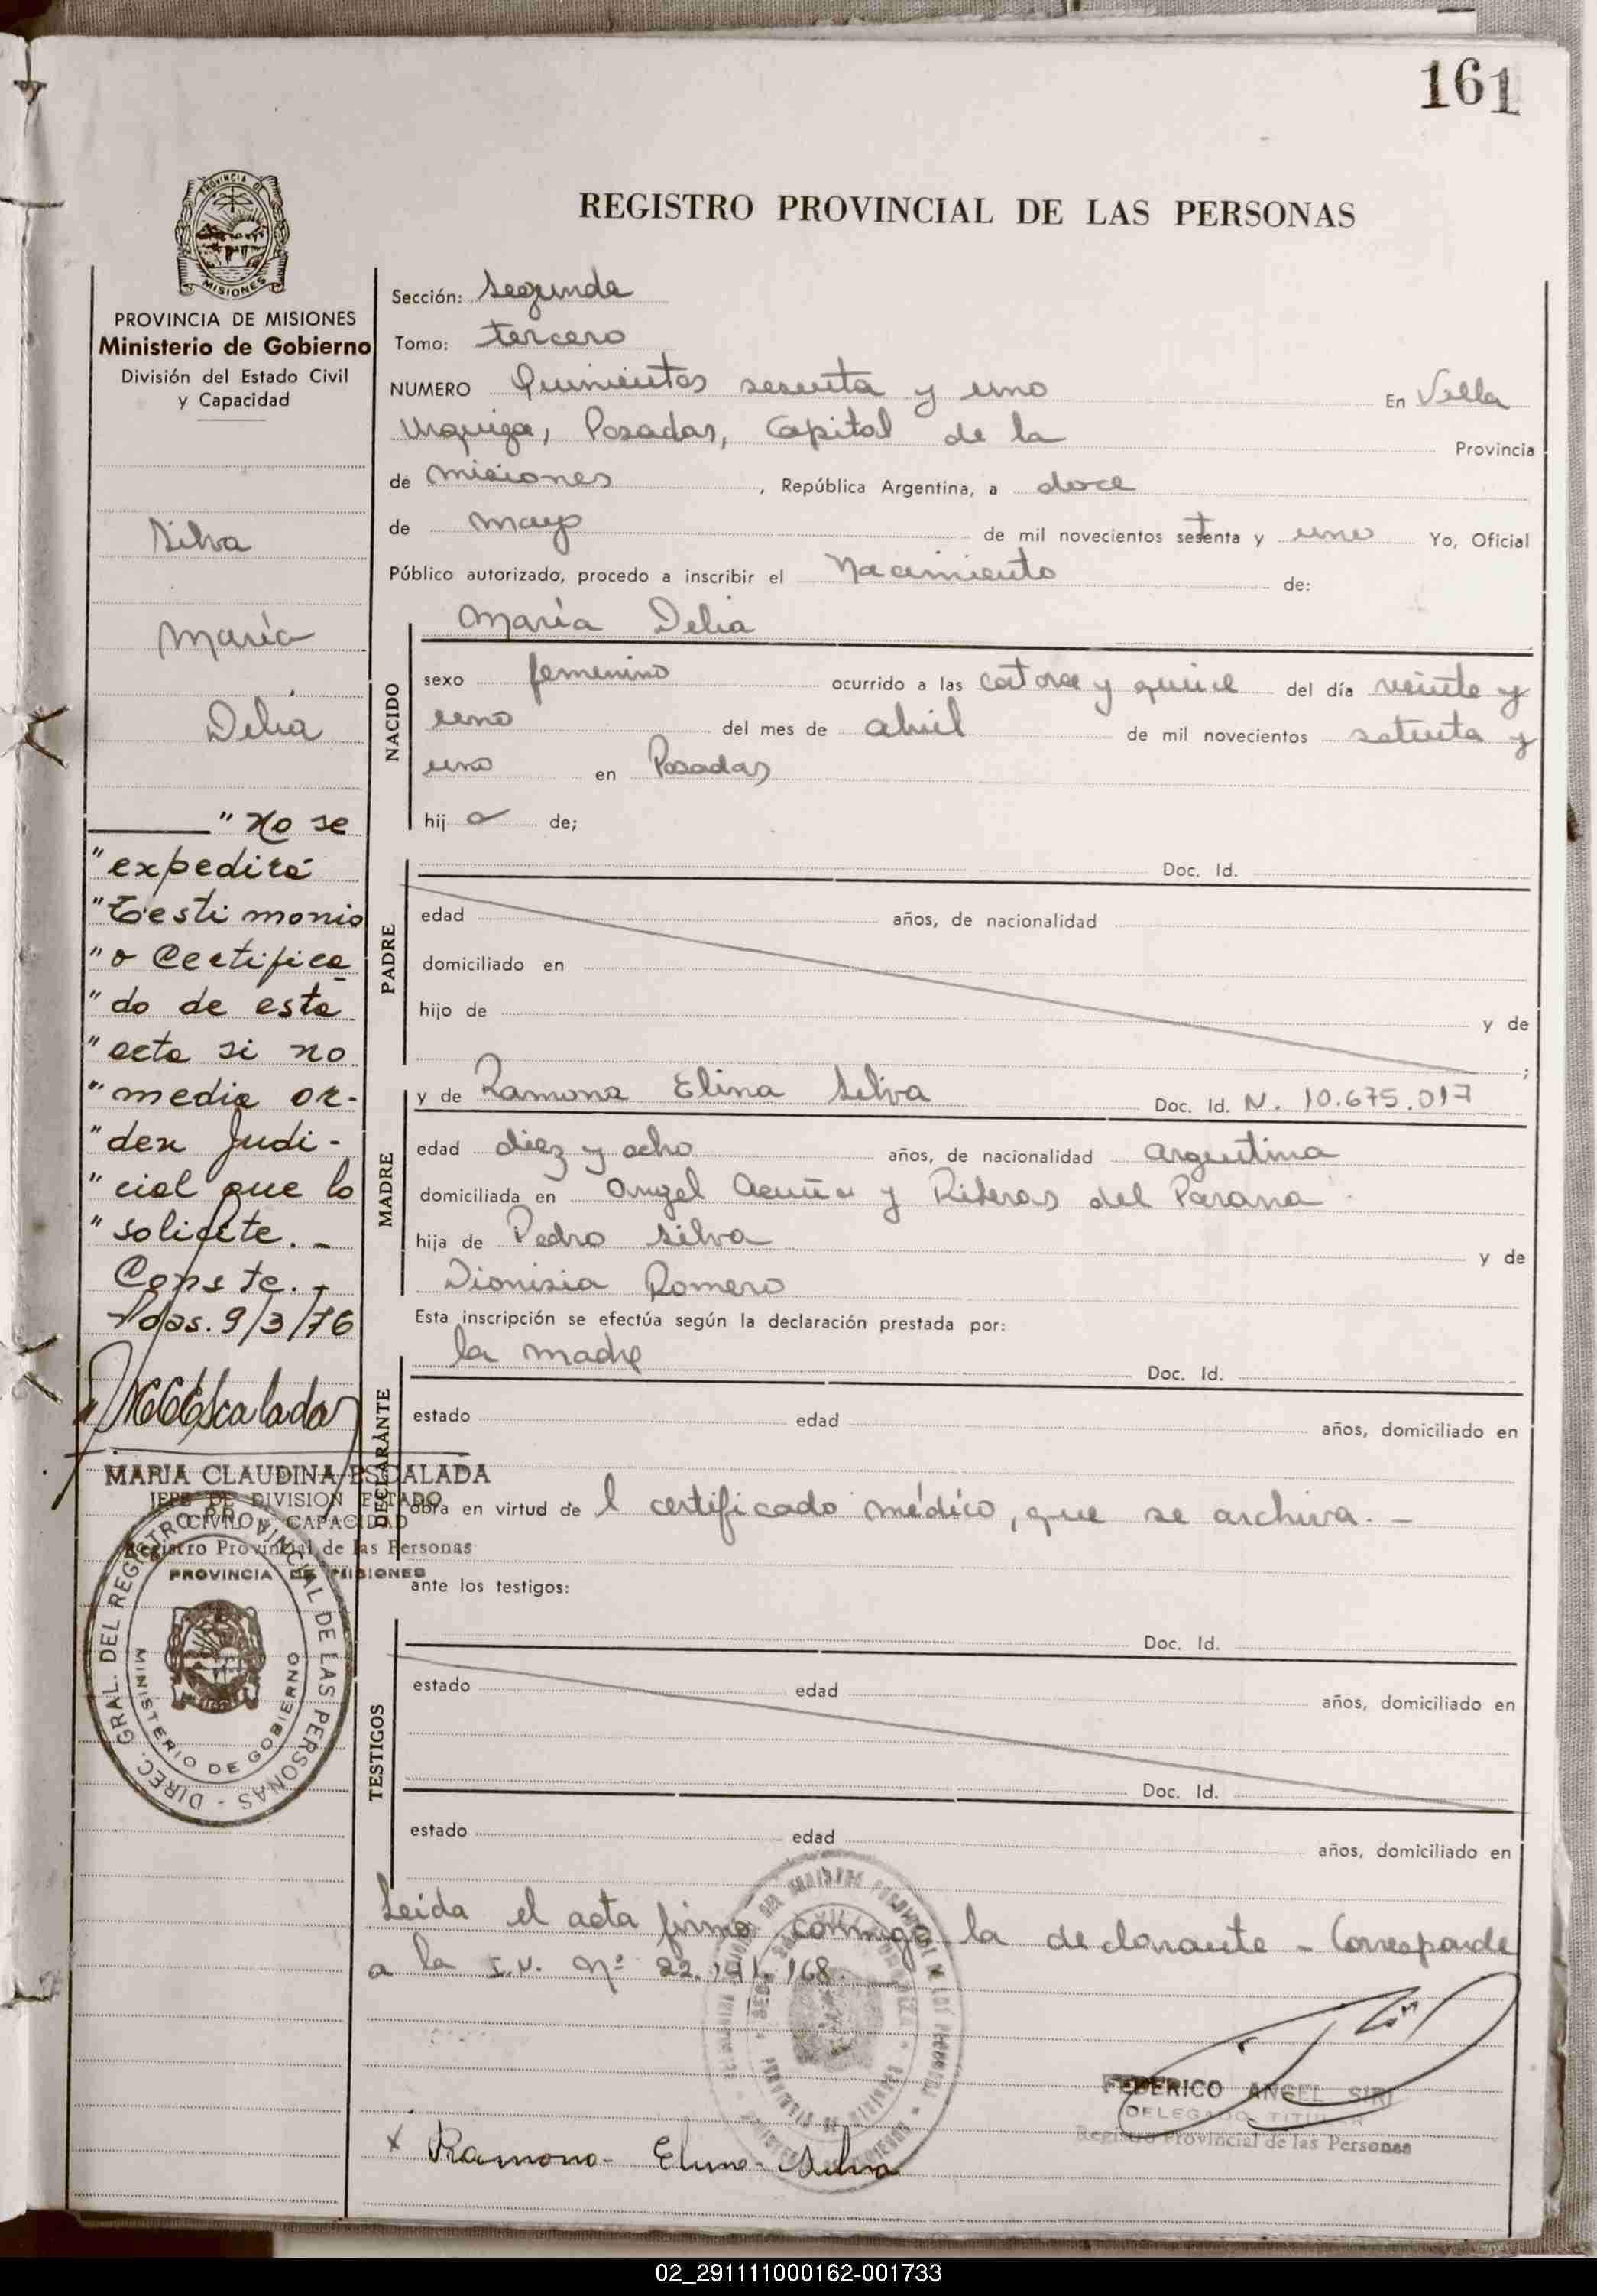 161
PROVINCIA DE
MISIONES
REGISTRO PROVINCIAL DE LAS PERSONAS
PROVINCIA DE MISIONES
Ministerio de Gobierno
División del Estado Civil
y Capacidad
Silva
María
Delia
"No se
"expedirá
"Testimonio
"o Certifica
"do de esta
"acta si no
"media or-
"den Judi-
"cial que lo
"solicite. -
Conste. -
Pdas. 9/3/76
MCEscalada
MARIA CLAUDINA ESCALADA
JEFE DE DIVISION ESTADO
CIVIL Y CAPACIDAD
Registro Provincial de las Personas
PROVINCIA DE MISIONES
DIREC. GRAL. DEL REGISTRO PROVINCIAL DE LAS PERSONAS -
MINISTERIO DE GOBIERNO
Sección: Segunda
Tomo: tercero
NUMERO Quinientos sesenta y uno En Villa
Urquiza, Posadas, Capital de la Provincia
de misiones, República Argentina, a doce
de mayo de mil novecientos setenta y uno Yo, Oficial
Público autorizado, procedo a inscribir el Nacimiento de:
María Delia
NACIDO
sexo femenino ocurrido a las catorce y quince del día veinte y
uno del mes de abril de mil novecientos setenta y
uno en Posadas
hij a de;
PADRE
Doc. Id.
edad años, de nacionalidad
domiciliado en
hijo de y de
;
MADRE
y de Ramona Elina Silva Doc. Id. N. 10.675.017
edad diez y ocho años, de nacionalidad argentina
domiciliada en Angel Acuña y Riberas del Parana
hija de Pedro Silva y de
Dionisia Romero
Esta inscripción se efectúa según la declaración prestada por:
DECLARANTE
la madre Doc. Id.
estado edad años, domiciliado en
obra en virtud de l certificado médico, que se archiva. -
ante los testigos:
TESTIGOS
Doc. Id.
estado edad años, domiciliado en
Doc. Id.
estado edad años, domiciliado en
Leída el acta firma conmigo la declarante - Corresponde
a la L.N. Nº 22.141.168.
FEDERICO ANGEL SIRI
DELEGADO TITULAR
Registro Provincial de las Personas
x Ramona - Elina - Silva
02_291111000162-001733